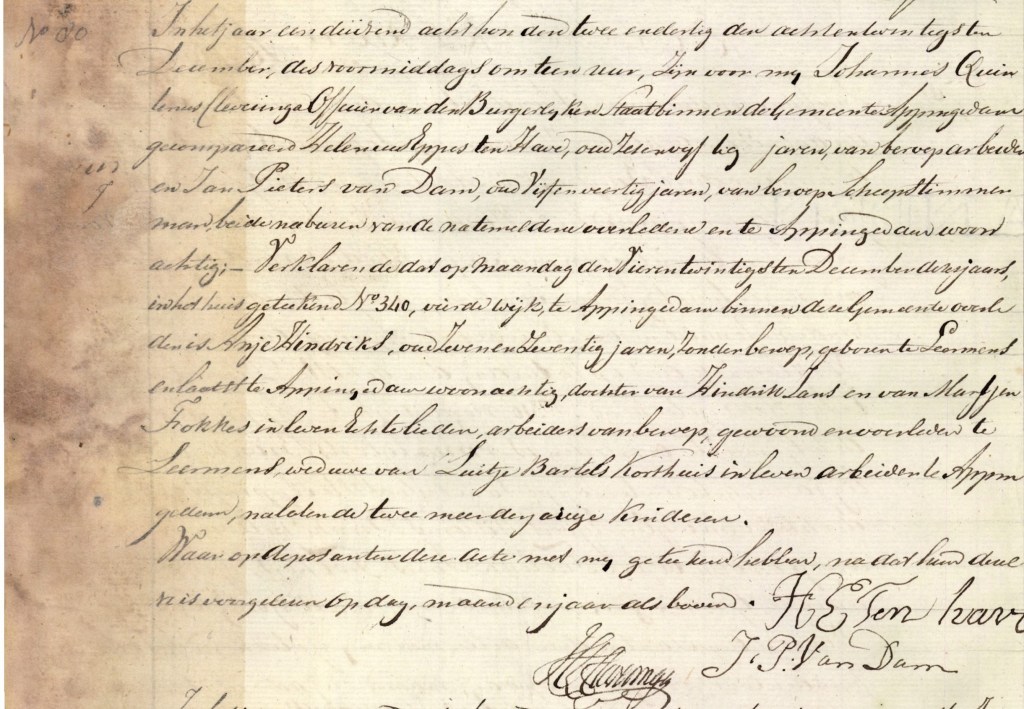 No 60
In het jaar een duizend acht honderd twee en dertig den acht en twintigsten
December, des voormiddags om tien uur, Zijn voor my Johannes Quin
tenius Clevringa Officier van den Burgerlyken Staat binnen de Gemeente Appingedam
gecompareerd Helenius Eppes ten Have, oud Zes en vyftig jaren, van beroep arbeider
en Jan Pieters van Dam, oud Vijf en veertig jaren, van beroep Scheepstimmer
man, beide naburen van de natemeldene overledene en te Appingedam woon
achtig; – Verklarende dat op maandag den Vier en twintigsten December dezes jaars,
in het huis getekend No 340, vierde wijk, te Appingedam binnen deze Gemeente overle
den is Anje Hindriks, oud Zeven en Zeventig jaren, Zonder beroep, geboren te Leermens
en laatst te Appingedam woonachtig, dochter van Hindrik Jans en van Martjen
Fokkes in leven Echtelieden, arbeiders van beroep, gewoond en overleden te
Leermens, weduwe van Luitje Bartels Korthuis in leven arbeider te Appin
gedam, nalatende twee meerderjarige Kinderen.
Waar op deposanten deze acte met my getekend hebben, na dat hun deze
is voorgelezen op dag, maand en jaar als boven.
H E Ten have
J. P. Van Dam